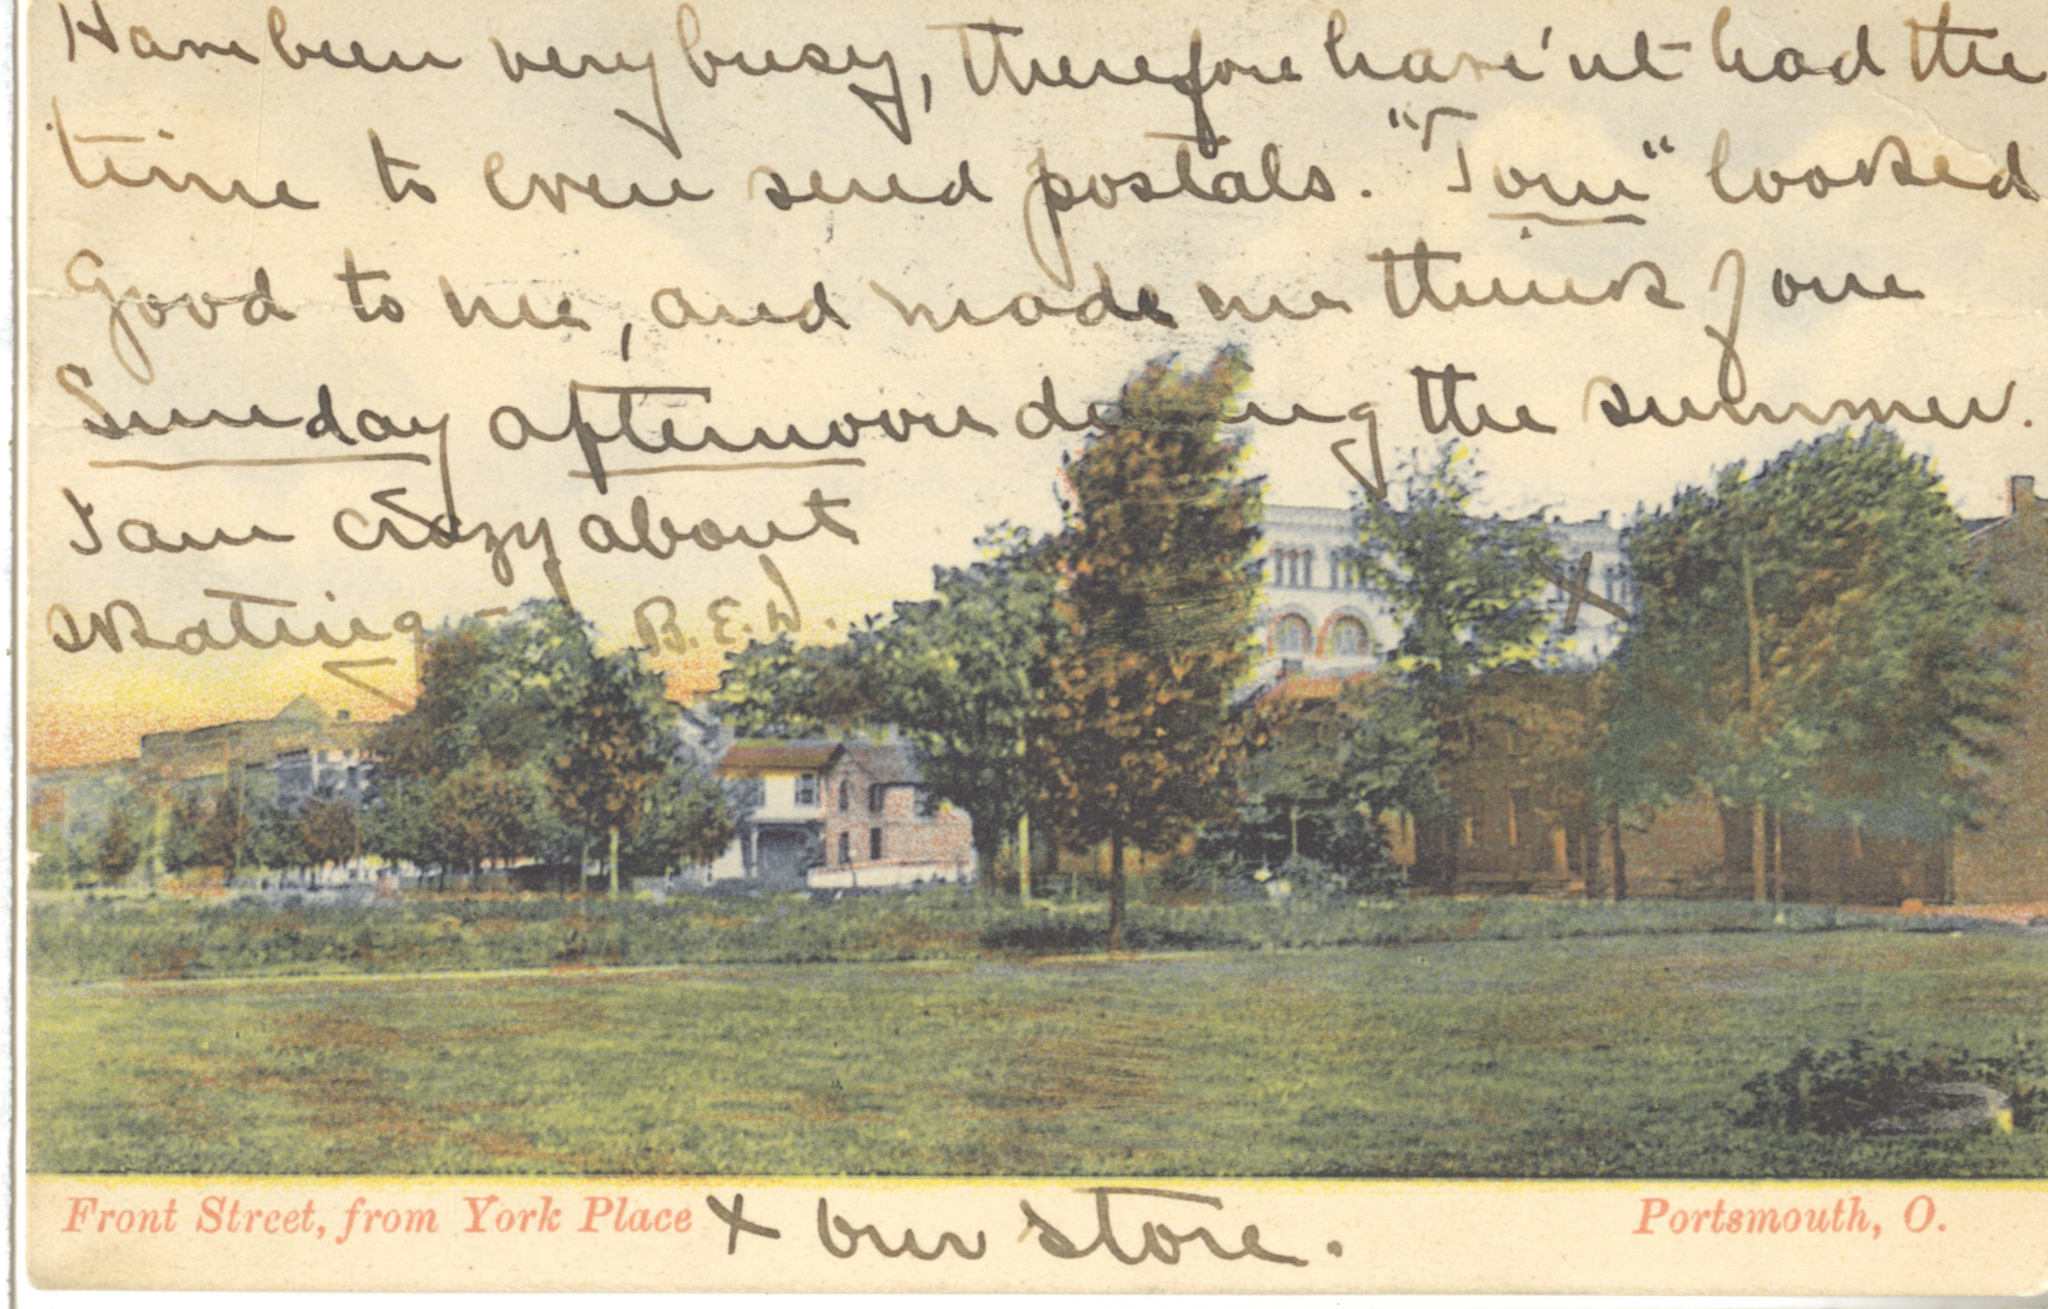 Have been very busy, therefore have'nt had the
time to even send postals. "Tom" looked
good to me, and made me think of one
Sunday afternoon during the summer.
I am crazy about
skating - B.E.W.
X
Front Street, from York Place X our store. Portsmouth, O.